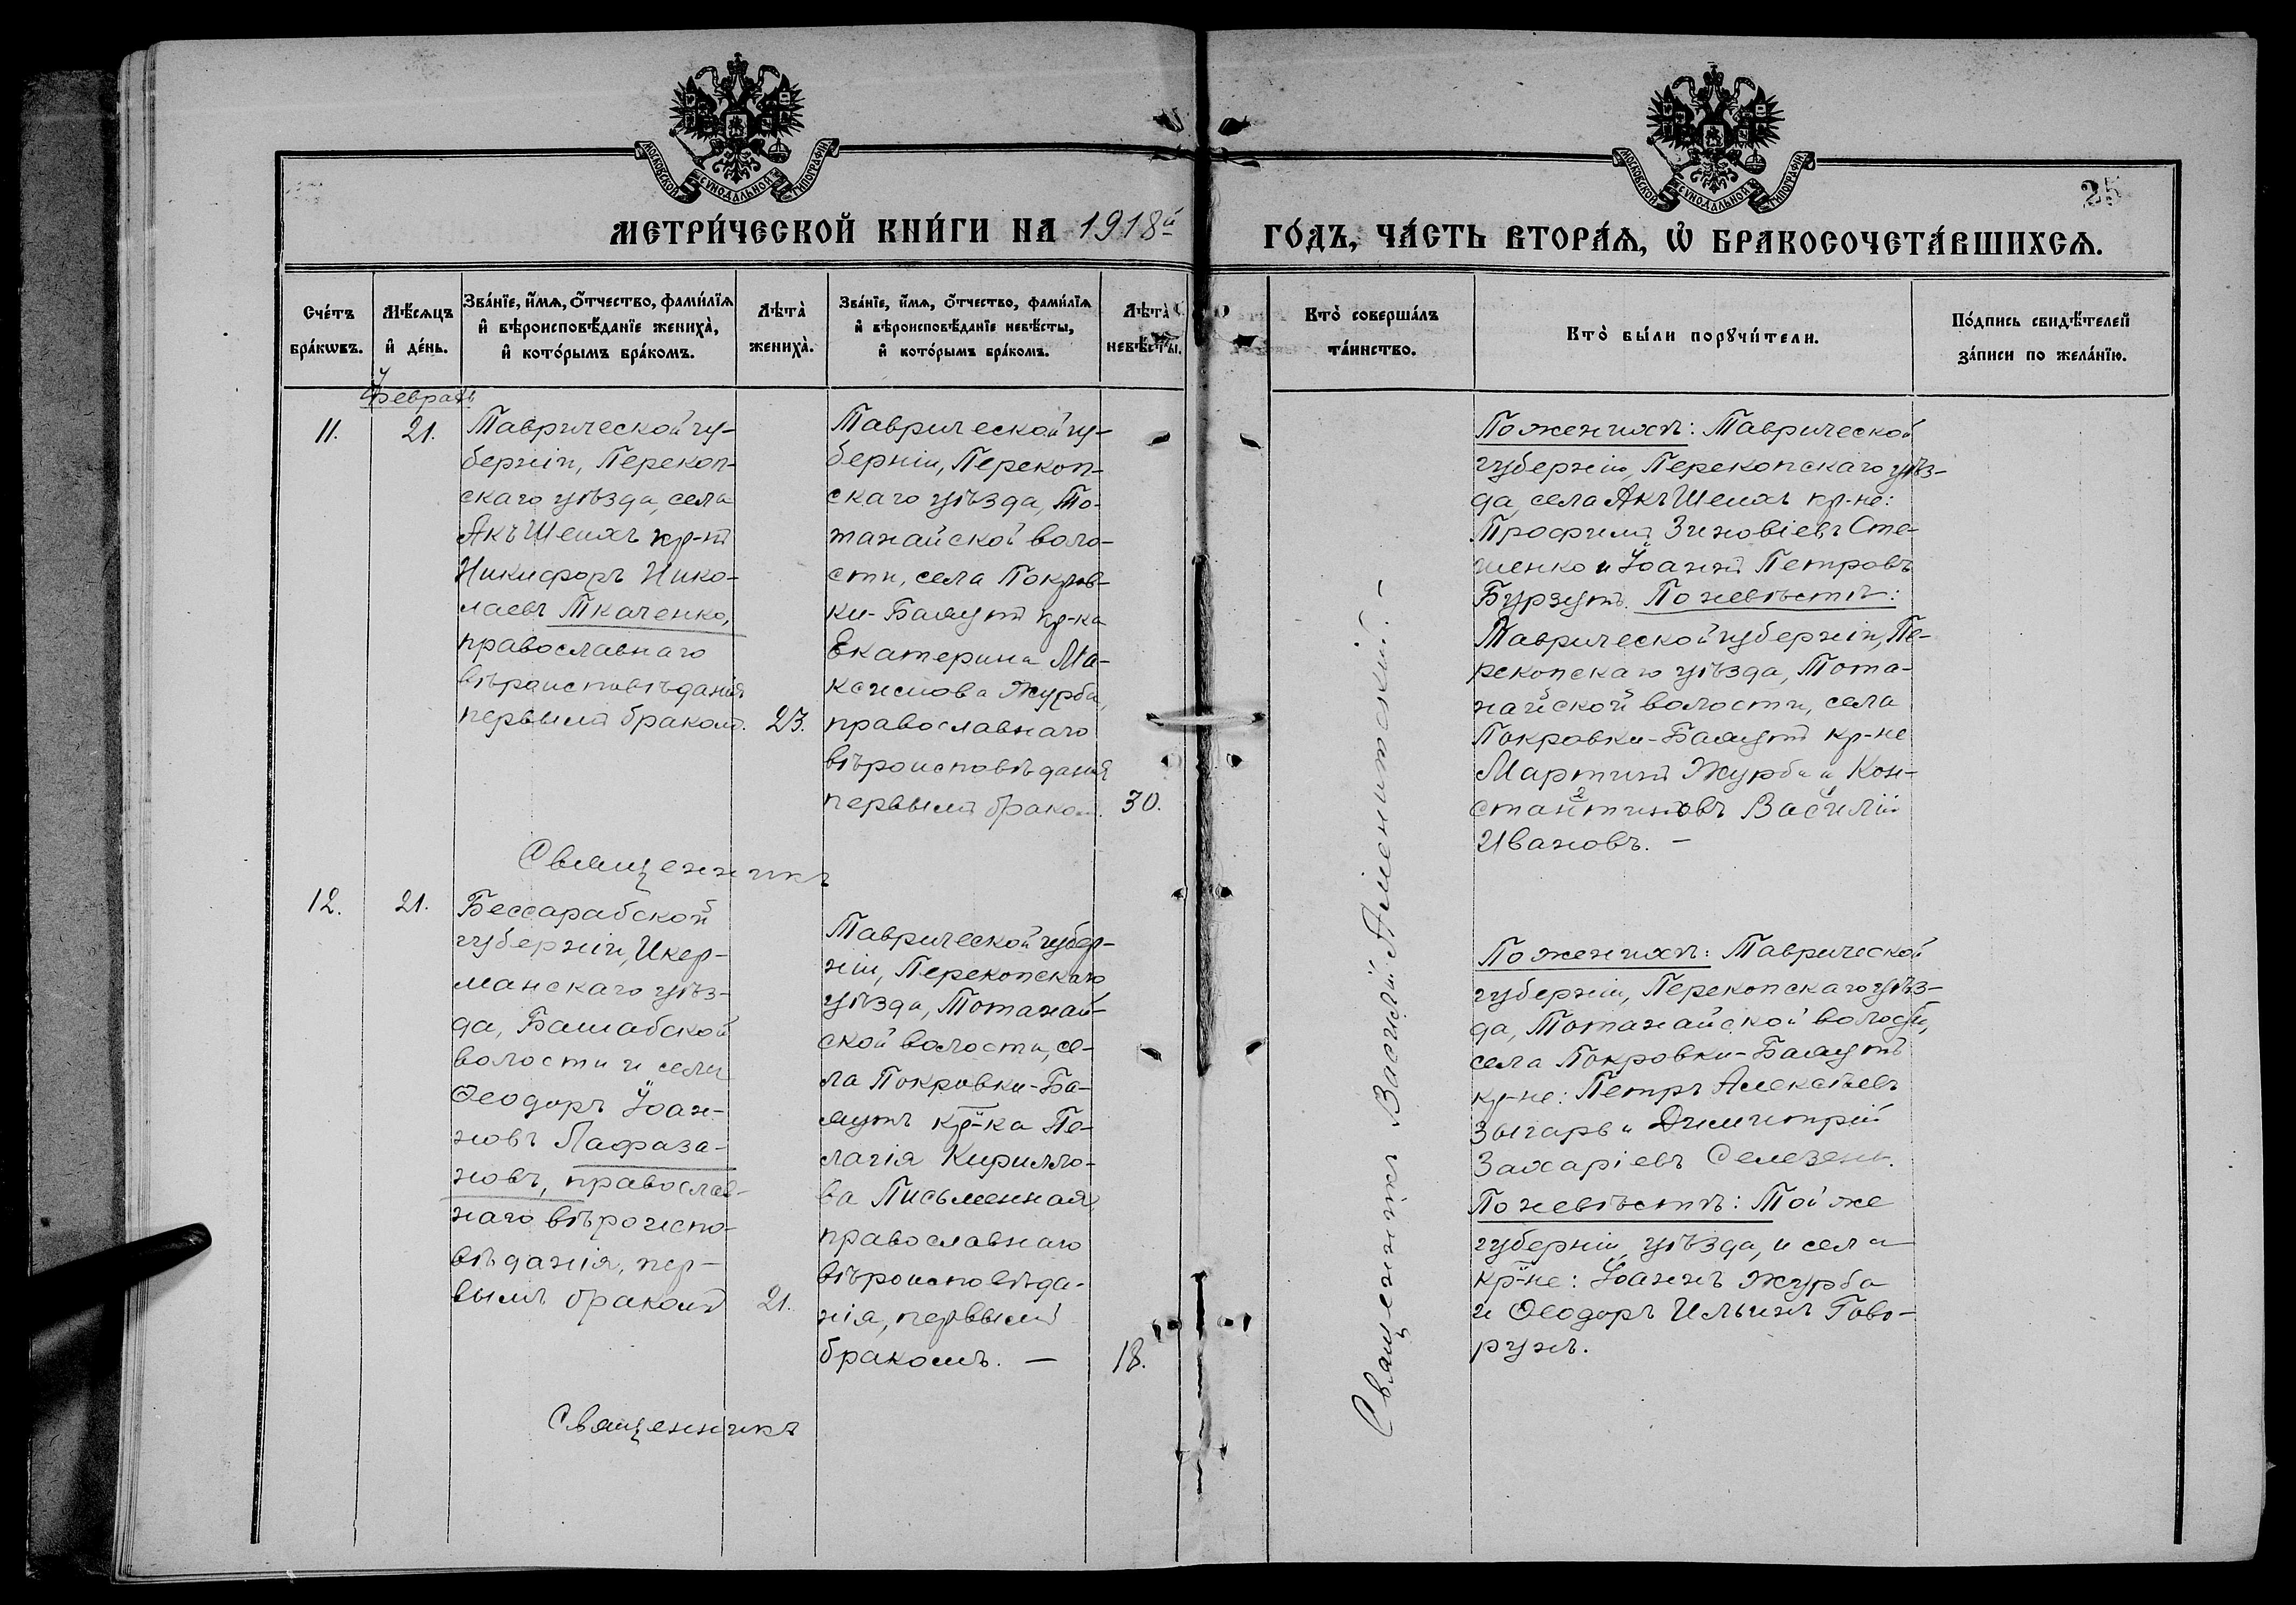 МОСКОВСКОЙ СУНОДАЛЬНОЙ ТИПОГРАФІИ
МОСКОВСКОЙ СУНОДАЛЬНОЙ ТИПОГРАФІИ
25
МЕТРИ́ЧЕСКОЙ КНИ́ГИ НА 1918й
ГО́ДЪ, ЧА́СТЬ ВТОРА́Ѧ, Ѽ БРАКОСОЧЕТА́ВШИХСѦ.
Сче́тъ
бра́кѡвъ.
Мѣ́сѧцъ
и҆ де́нь.
Зва́нїе, и҆́мѧ, ѻ҆́тчество, фами́лїѧ
и҆ вѣроисповѣ́данїе жениха̀,
и҆ кото́рымъ бра́комъ.
Лѣта̀
жениха̀.
Зва́нїе, и҆́мѧ, ѻ҆́тчество, фами́лїѧ
и҆ вѣроисповѣ́данїе невѣ́сты,
и҆ кото́рымъ бра́комъ.
Лѣта̀
невѣ́сты.
Кто̀ соверша́лъ
та́инство.
Кто̀ бы́ли порꙋчи́тели.
По́дпись свидѣ́телей
за́писи по жела́нїю.
Февраль
11.
21.
Таврической гу-
берніи, Перекоп-
скаго уѣзда, села
Акъ Шеихъ кр-нъ
Никифоръ Нико-
лаевъ Ткаченко,
православнаго
вѣроисповѣданія
первымъ бракомъ.
23.
Таврической гу-
берніи, Перекоп-
скаго уѣзда, То-
танайской воло-
сти, села Покров-
ки-Баяутъ кр-ка
Екатерина Ма-
ксимова Журба,
православнаго
вѣроисповѣданія
первымъ браком.
30.
Священникъ
По женихѣ: Таврической
губерніи, Перекопскаго уѣз-
да, села Акъ Шеихъ кр-не:
Трофимъ Зиновіевъ Сте-
шенко и Іоаннъ Петровъ
Бурзутъ. По невѣстѣ:
Таврической губерніи, Пе-
рекопскаго уѣзда, Тота-
найской волости, села
Покровки-Баяутъ кр-не
Мартинъ Журба и Кон-
стантиновъ Василій
Ивановъ. —
12.
21.
Бессарабской
губерніи, Икер-
манскаго уѣз-
да, Башабской
волости и села
Ѳеодоръ Іоан-
новъ Лафаза-
новъ, православ-
наго вѣроиспо-
вѣданія, пер-
вымъ бракомъ
21.
Таврической губер-
ніи, Перекопскаго
уѣзда, Тотанай-
ской волости, се-
ла Покровки-Ба-
яутъ кр-ка Пе-
лагія Кирилло-
ва Письменная
православнаго
вѣроисповѣда-
нія, первымъ
бракомъ. —
18.
Священникъ
Священникъ Василій
По женихѣ: Таврической
губерніи, Перекопскаго уѣз-
да, Тотанайской волости,
села Покровки-Баяутъ
кр-не: Петръ Алексѣевъ
Звгарь и Димитрій
Захаріевъ Селезень.
По невѣстѣ: Той же
губерніи, уѣзда, и села
кр-не: Іоаннъ Журба
и Ѳеодоръ Ильинъ Гово-
рунъ.